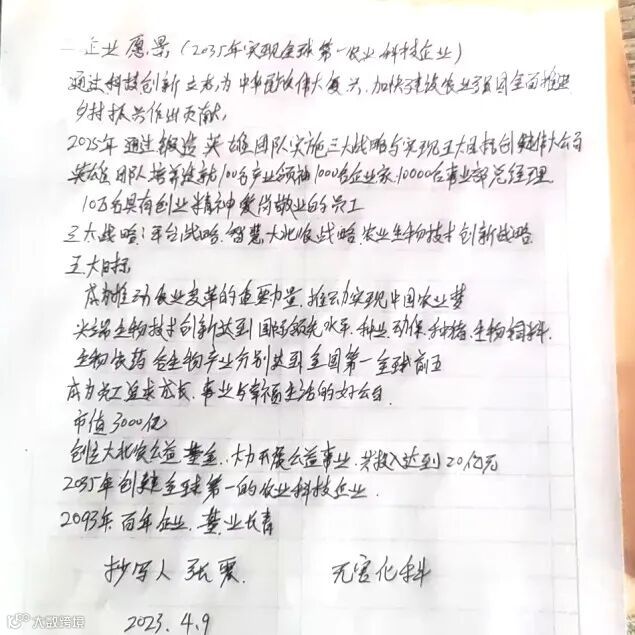 二 企业愿景（2035年实现全球第一农业科技企业）
通过科技创新立志，为中华民族伟大复兴、加快建设农业强国全面推进
乡村振兴作出贡献，
2025年通过锻造英雄团队实施三大战略与实现五大目标创建伟大公司
英雄团队培养造就100名产业领袖1000名企业家10000名事业部总经理
10万名具有创业精神爱岗敬业的员工
三大战略：平台战略、智慧大北农战略、农业生物技术创新战略
五大目标
成为推动农业变革的重要力量，推动实现中国农业梦
尖端生物技术创新达到国际领先水平，种业、动保、种猪、生物饲料、
生物农药 生物产业分别达到全国第一全球前五
成为员工追求成长、事业与幸福生活的好公司
市值3000亿
创立大北农公益基金，大力开展公益事业，共投入达到20亿元
2035年创建全球第一的农业科技企业
2093年百年企业、基业长青
抄写人 张 无害化科
2023.4.9
大数跨境